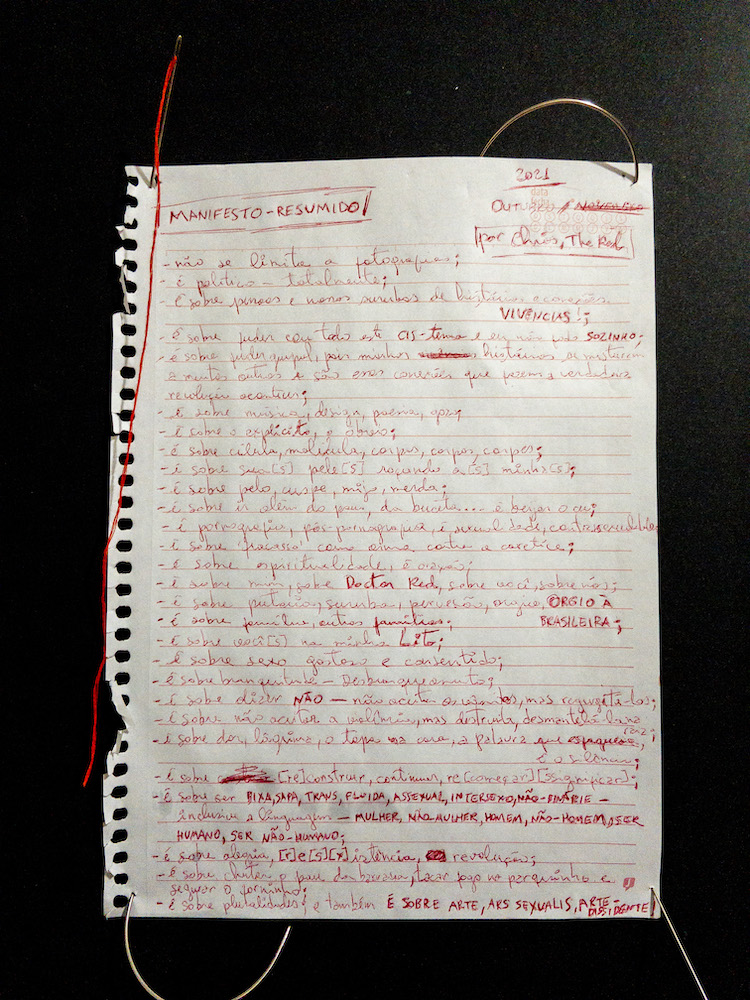 2021
MANIFESTO-RESUMIDO
OUTUBRO / NOVEMBRO
por Chris, The Red
- não se limita a fotografias;
- é político - totalmente;
- é sobre pessoas e nossas surubas de histórias e conexões.
VIVÊNCIAS!;
- é sobre foder com todo este CIS-tema e eu não fodo SOZINHO;
- é sobre poder que, por minhas histórias, se misturem
a muitas outras e são essas conexões que fazem a verdadeira
revolução acontecer;
- é sobre música, design, poema, gozo;
- é sobre o explícito, o óbvio;
- é sobre célula, molécula, corpus, corpos, corpes;
- é sobre sua[s] pele[s] roçando a[s] minha[s];
- é sobre pelo, cuspe, mijo, merda;
- é sobre ir além do pau, da buceta... é beijar o cu;
- é pornografia, pós-pornografia, é sexualidade, contrassexualidade;
- é sobre fracasso como arma contra a caretice;
- é sobre espiritualidade, é oração;
- é sobre mim, sobre Doctor Red, sobre você, sobre nós;
- é sobre putaria, suruba, perversão, orgia, ÓRGIO À
BRASILEIRA;
- é sobre família, outras famílias;
- é sobre você[s] na minha Lito;
- é sobre sexo gostoso e consentido;
- é sobre branquitude - Desbranqueamento;
- é sobre dizer NÃO - não aceitar os, mas regurgitá-los;
- é sobre não aceitar a violência, mas destruí-la, desmantelá-la na
raiz;
- é sobre dor, lágrima, o tapa na cara, a palavra que espaqueia,
é o silêncio;
- é sobre [re]construir, continuar, re[começar][significar];
- é sobre ser BIXA, SAPA, TRANS, FLUIDA, ASSEXUAL, INTERSEXO, NÃO-BINÁRIE -
inclusive a linguagem - MULHER, NÃO-MULHER, HOMEM, NÃO-HOMEM, SER
HUMANO, SER NÃO-HUMANO;
- é sobre alegria, [r]e[s][x]istência, revolução;
- é sobre chutar o pau da barraca, tacar fogo no parquinho e
segurar o forninho;
- é sobre pluralidades; e também É SOBRE ARTE, ARS SEXUALIS, ARTE-
DISSIDENTE